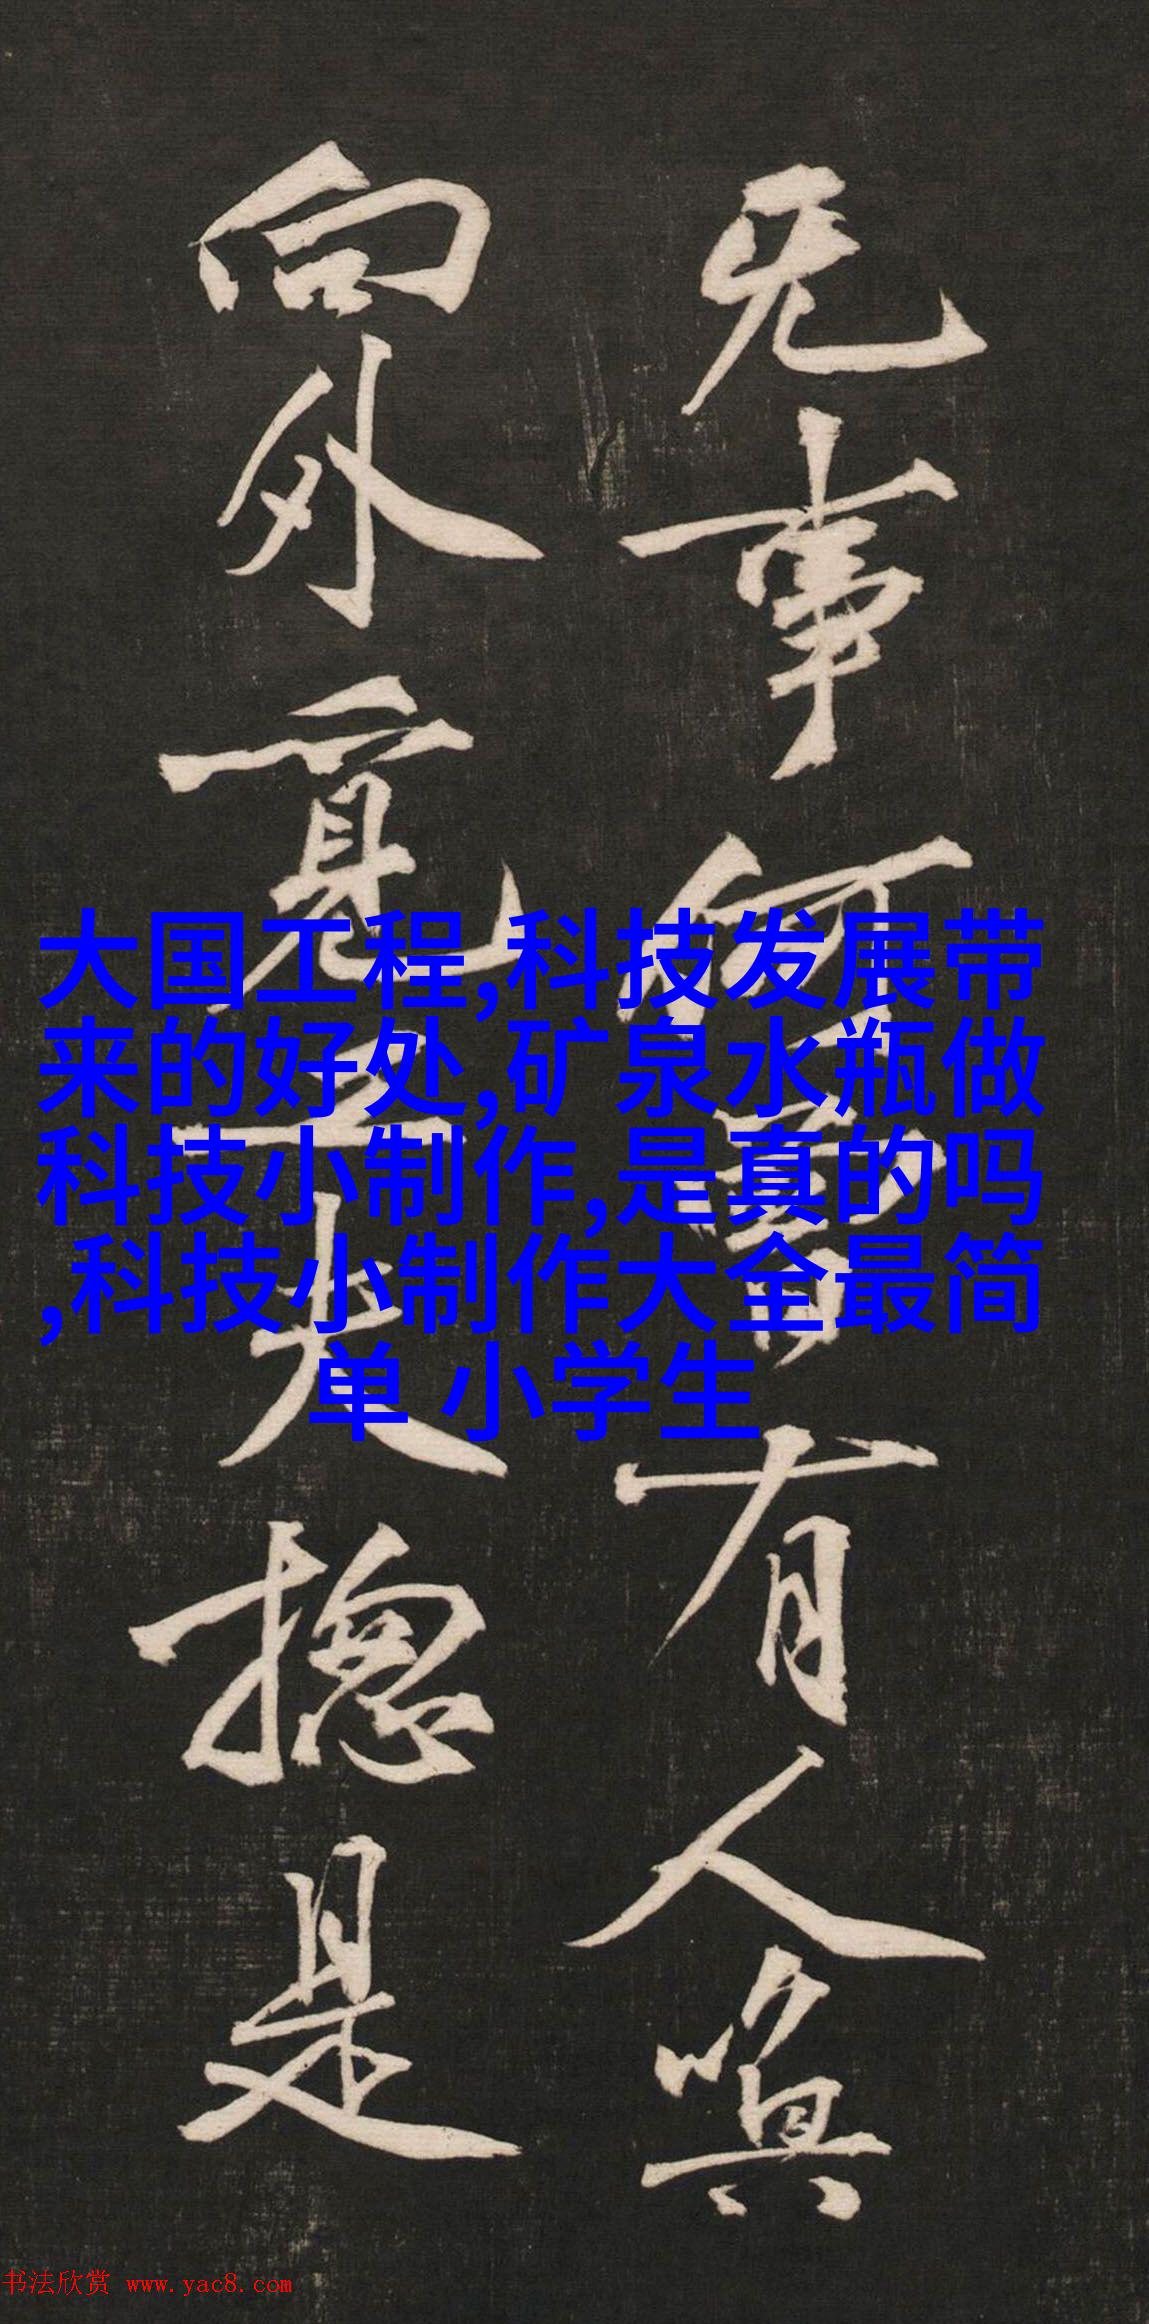 无事何有人唤
向外觅工夫揔是
大国工程,科技发展带
来的好处,矿泉水瓶做
科技小制作,是真的吗
,科技小制作大全最简
单 小学生
书法欣赏 www.yac8.com